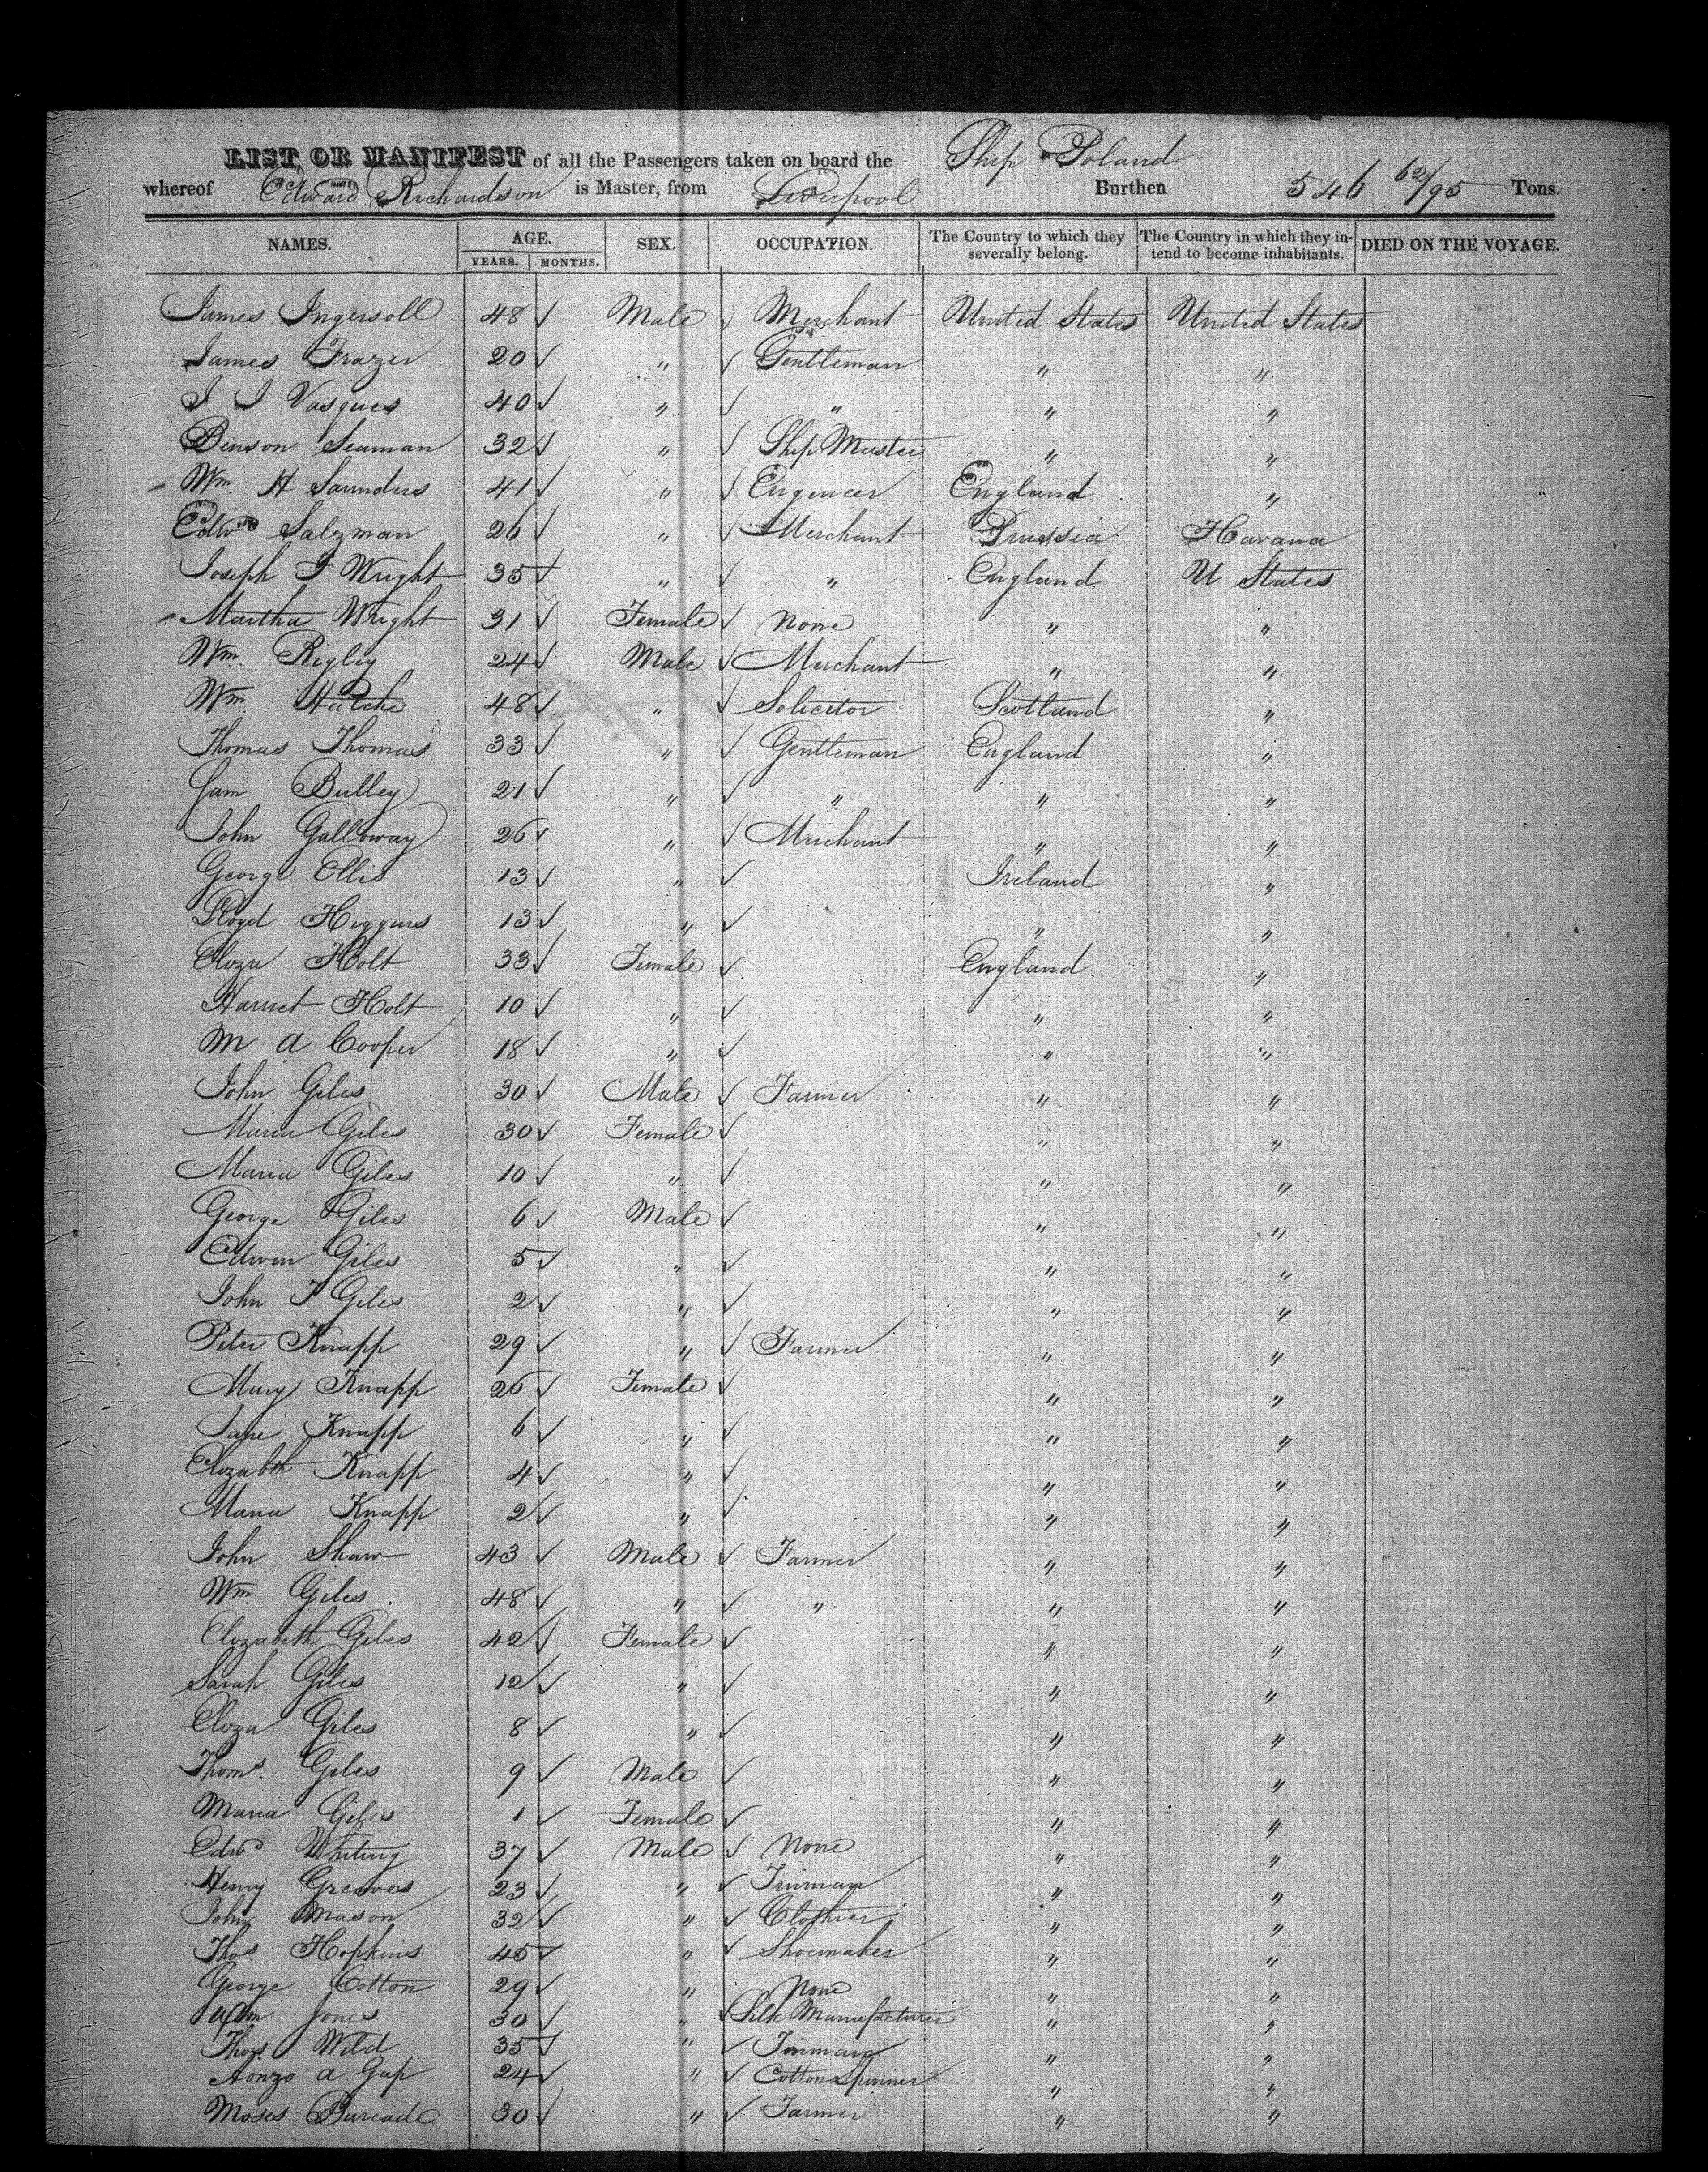 LIST OR MANIFEST of all the Passengers taken on board the Ship Poland
whereof Edward Richardson is Master, from Liverpool Burthen 546 62/95 Tons.
NAMES. AGE. SEX. OCCUPATION. The Country to which they severally belong. The Country in which they intend to become inhabitants. DIED ON THE VOYAGE.
YEARS. MONTHS.
James Ingersoll 48 ✓ Male ✓ Merchant United States United States
James Frazer 20 ✓ " ✓ Gentleman " "
J J Vasques 40 ✓ " ✓ " " "
Benson Seaman 32 ✓ " ✓ Ship Master " "
Wm. H Saunders 41 ✓ " ✓ Engineer England "
Edwd Salzman 26 ✓ " ✓ Merchant Prussia Havana
Joseph J Wright 35 ✓ " ✓ " England U States
Martha Wright 31 ✓ Female ✓ None " "
Wm. Rigley 24 ✓ Male ✓ Merchant " "
Wm. 48 ✓ " ✓ Solicitor Scotland "
Thomas Thomas 33 ✓ " ✓ Gentleman England "
Bulley 21 ✓ " ✓ " " "
John Galloway 26 ✓ " ✓ Merchant " "
George Ellis 13 ✓ " ✓ Ireland "
Lloyd Higgins 13 ✓ " ✓ " "
Eliza Holt 33 ✓ Female ✓ England "
Harriet Holt 10 ✓ " ✓ " "
M A Cooper 18 ✓ " ✓ " "
John Giles 30 ✓ Male ✓ Farmer " "
Maria Giles 30 ✓ Female ✓ " "
Maria Giles 10 ✓ " ✓ " "
George Giles 6 ✓ Male ✓ " "
Edwin Giles 5 ✓ " ✓ " "
John F Giles 2 ✓ " ✓ " "
Peter Knapp 29 ✓ " ✓ Farmer " "
Mary Knapp 26 ✓ Female ✓ " "
Jane Knapp 6 ✓ " ✓ " "
Elizabth Knapp 4 ✓ " ✓ " "
Maria Knapp 2 ✓ " ✓ " "
John Shaw 43 ✓ Male ✓ Farmer " "
Wm. Giles 48 ✓ " ✓ " " "
Elizabeth Giles 42 ✓ Female ✓ " "
Sarah Giles 12 ✓ " ✓ " "
Eliza Giles 8 ✓ " ✓ " "
Thoms. Giles 9 ✓ Male ✓ " "
Maria Giles 1 ✓ Female ✓ " "
Edwd. Whiting 37 ✓ Male ✓ None " "
Henry Greaves 23 ✓ " ✓ Tinman " "
John Mason 32 ✓ " ✓ Clothier " "
Thos. Hopkins 45 ✓ " ✓ Shoemaker " "
George Cotton 29 ✓ " None " "
Wm Jones 30 ✓ " ✓ Silk Manufacturer " "
Thos. Wild 35 ✓ " ✓ Tinman " "
Aonzo A Gap 24 ✓ " ✓ Cotton Spinner " "
Moses 30 ✓ " ✓ Farmer " "